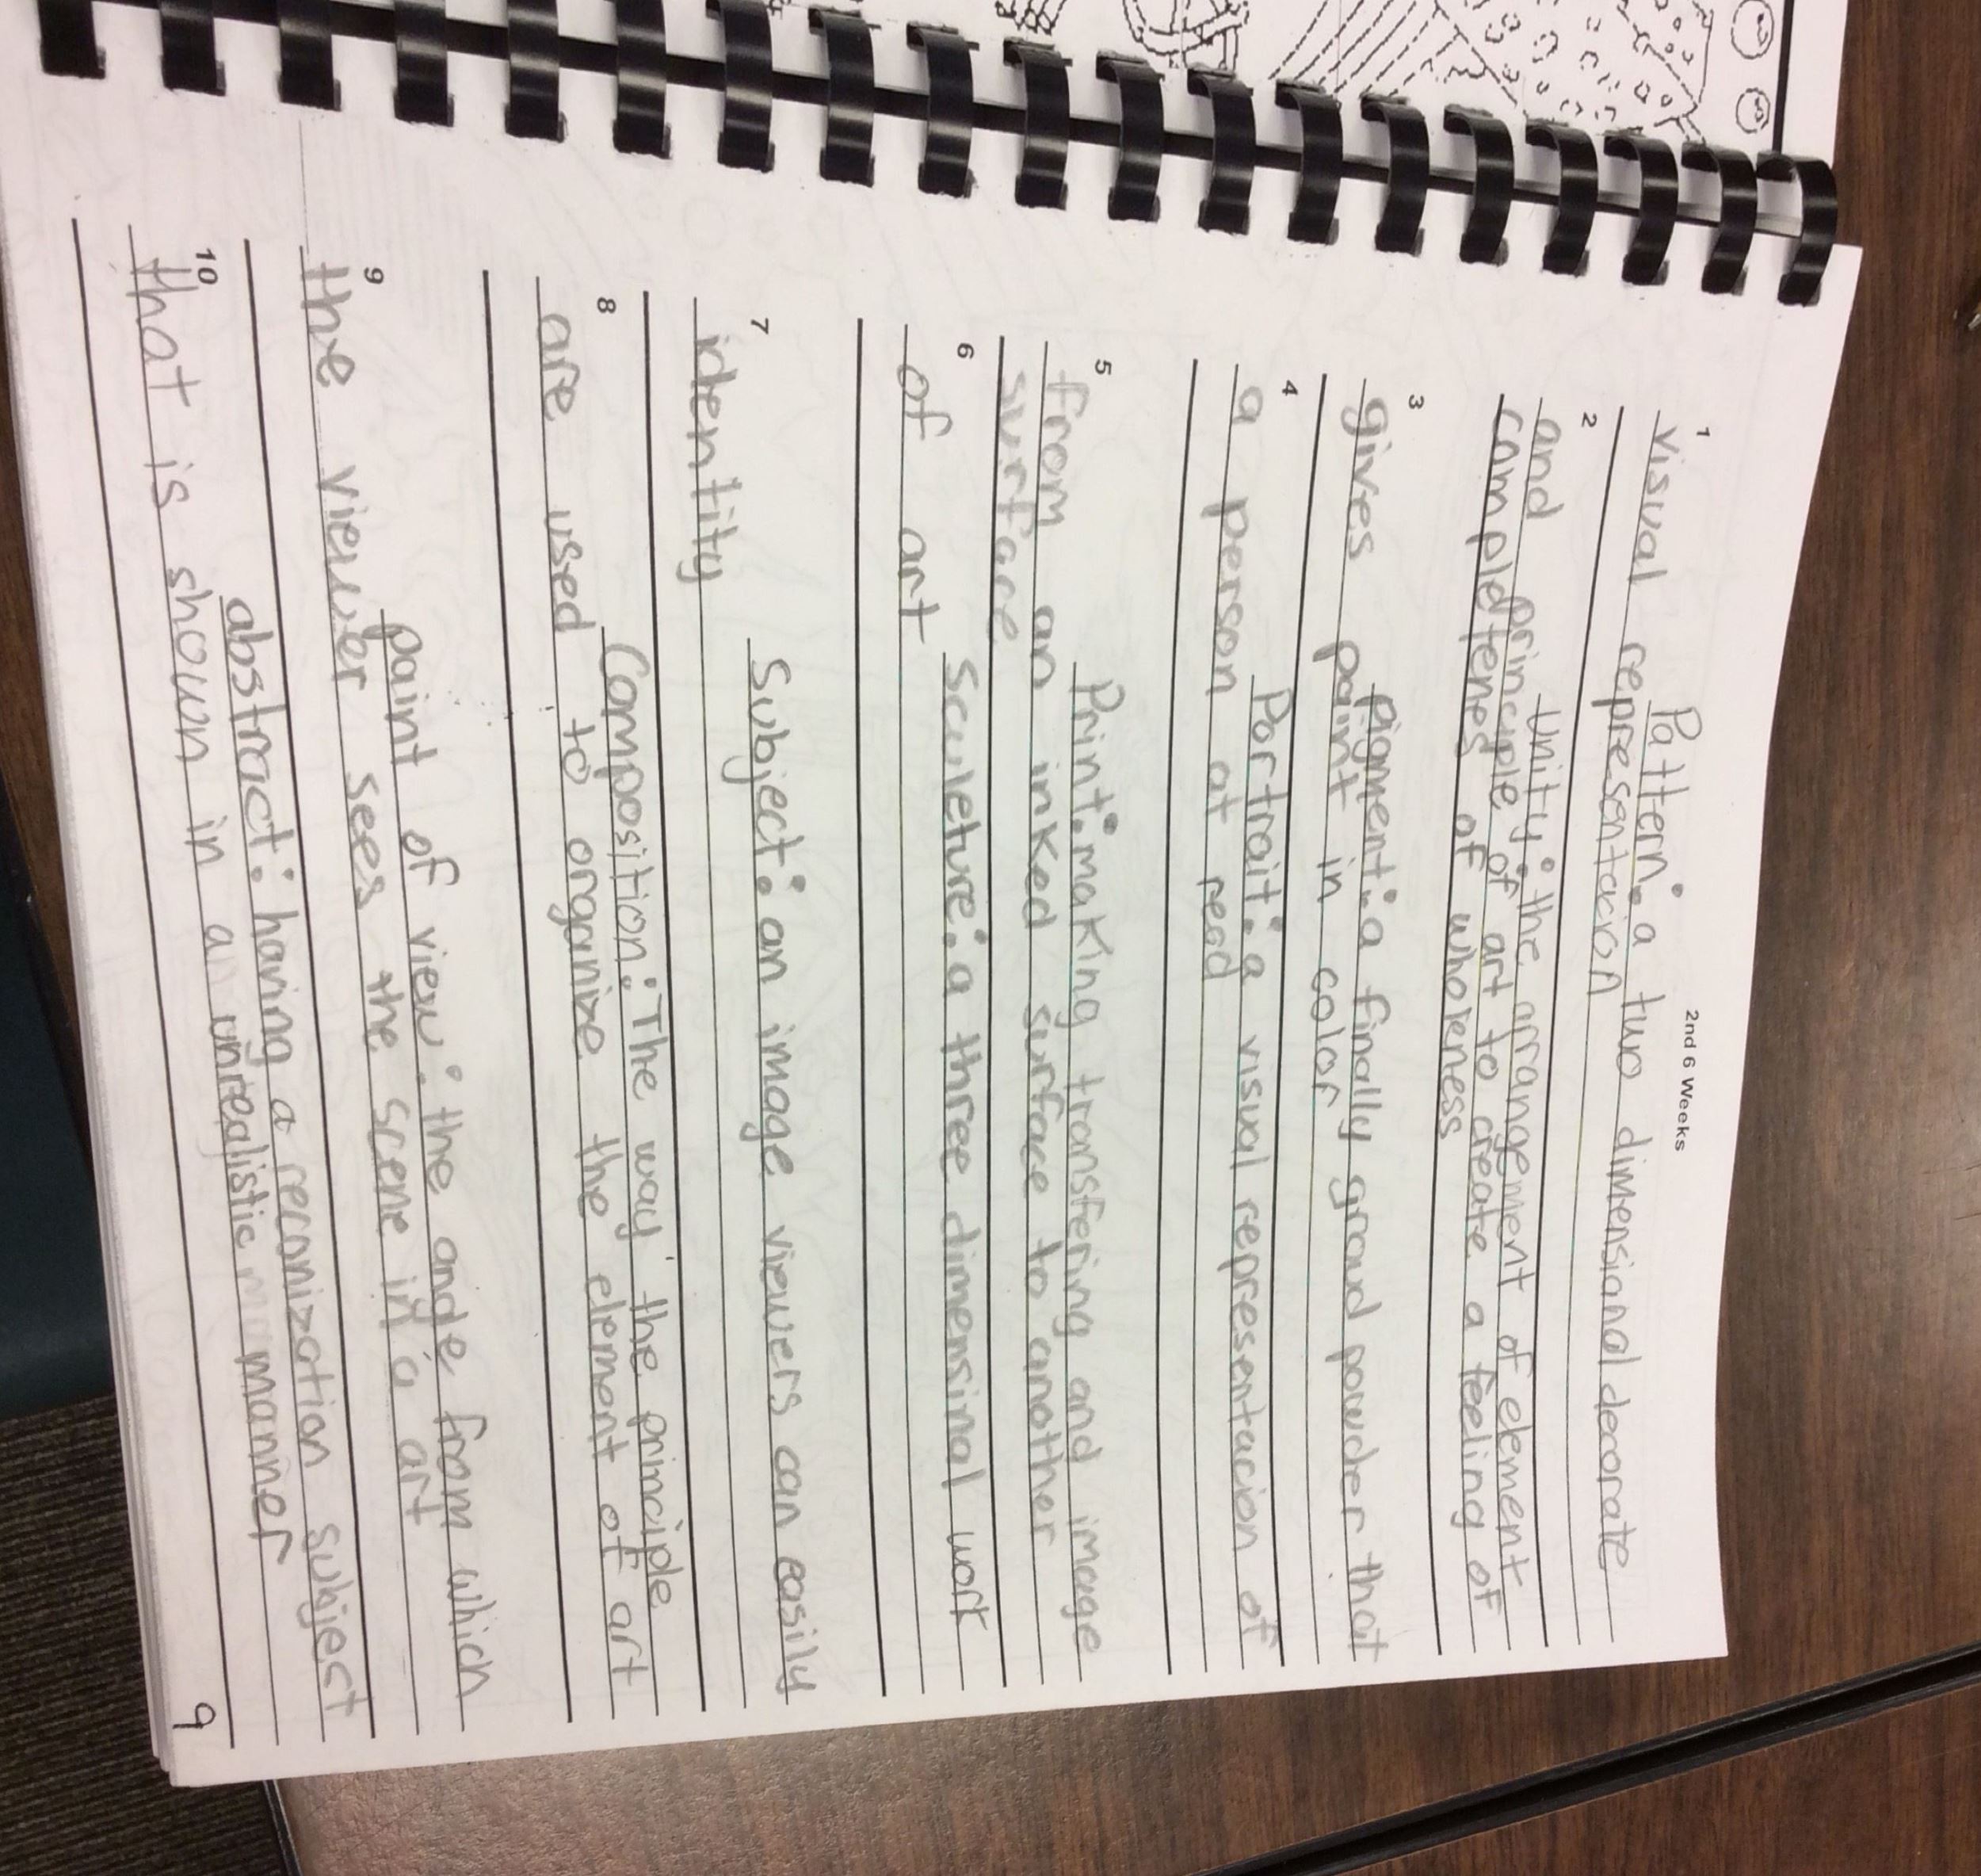 2nd 6 Weeks
1 Pattern: a two dimensional decorate
visual representacion
2 Unity: the arrangement of element
and principle of art to create a feeling of
completenes of wholeness
3 Pigment: a finally ground powder that
gives paint in color
4 Portrait: a visual representacion of
a person at
5 Print: making transfering and image
from an inked surface to another
surface
6 Sculeture: a three dimensinal work
of art
7 Subject: an image viewers can easily
identity
8 Composition: The way the principle
are used to organize the element of art
9 paint of view: the angle from which
the viewer sees the scene in a art
10 abstract: having a reconization subject
that is shown in a unrealistic manner
9